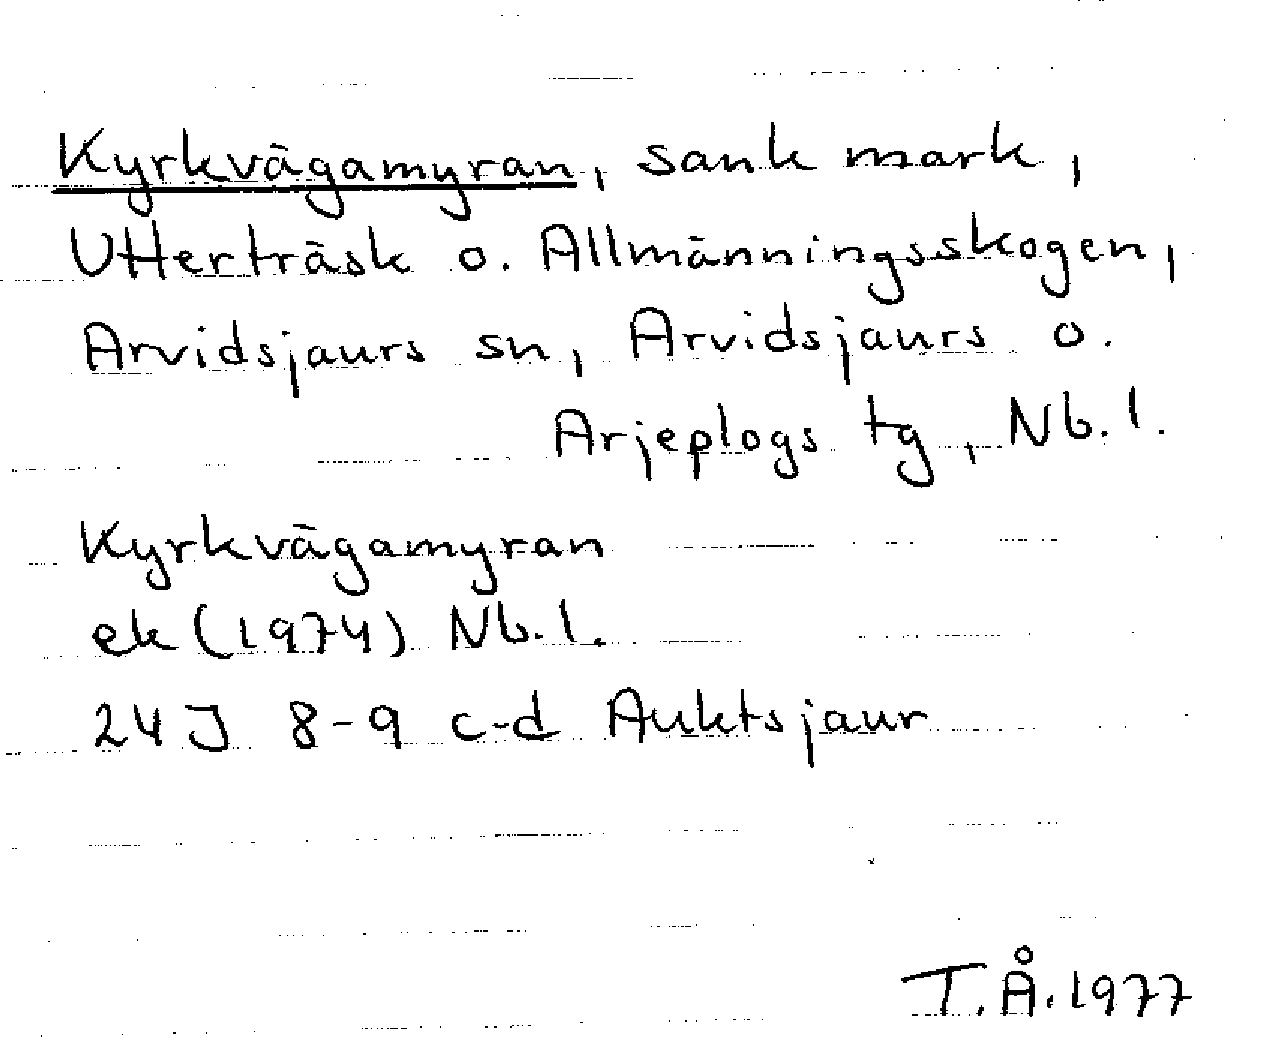 Kyrkvägamyran, sank mark,
Utterträsk o. Allmänningsskogen,
Arvidsjaurs sn, Arvidsjaurs o.
Arjeplogs tg, Nb.l.
Kyrkvägamyran
ek (1974) Nb.l.
24J 8-9 c-d Auktsjaur
T.Å. 1977